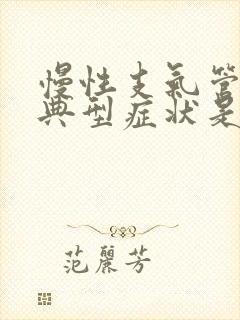 慢性支氣管
典型症狀是
范麗芳